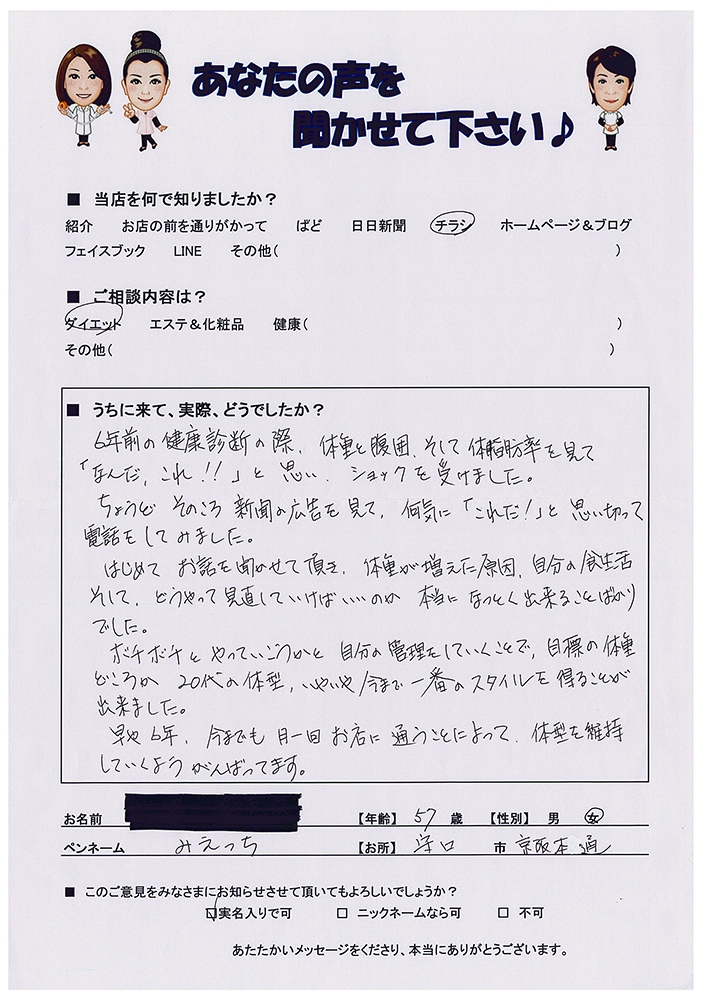 あなたの声を
聞かせて下さい♪
■ 当店を何で知りましたか？
紹介 お店の前を通りがかって ぱど 日日新聞 チラシ ホームページ＆ブログ
フェイスブック LINE その他( )
■ ご相談内容は？
ダイエット エステ＆化粧品 健康( )
その他( )
■ うちに来て、実際、どうでしたか？
6年前の健康診断の際、体重と腹囲、そして体脂肪率を見て
「なんだ、これ!!」と思い、ショックを受けました。
ちょうど そのころ 新聞の広告を見て、何気に「これだ!」と思い切って
電話をしてみました。
はじめて お話を聞かせて頂き、体重が増えた原因、自分の食生活
そして、どうやって見直していけばいいのか 本当になっとく出来ることばかり
でした。
ボチボチと やっていこうかと 自分の管理をしていくことで、目標の体重
どころか 20代の体型、いやいや今まで一番のスタイルを得ることが
出来ました。
早や6年、今までも 月一回 お店に通うことによって、体型を維持
していくよう がんばってます。
お名前 【年齢】 57 歳 【性別】 男 女
ペンネーム みえっち 【お所】 守口 市 京阪本通
■ このご意見をみなさまにお知らせさせて頂いてもよろしいでしょうか？
☑実名入りで可 □ ニックネームなら可 □ 不可
あたたかいメッセージをくださり、本当にありがとうございます。